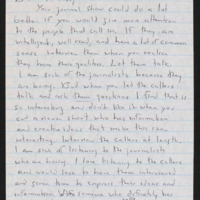 Your journal show could do a lot
better if you would give more attention
to the people that call in. If they are
intelligent, well read, and have a lot of common
sense. Interview them when you realize
they have those qualities. Let them talk.
I am sick of the journalists because they
are boring. But when you let the callers
talk and ask them questions I find that is
so interesting and don't like it when you
cut a viewer short who has information
and creative ideas that make this show
interesting. Interview the callers at length.
I am sick of listening to the journalists
who are boring. I love listening to the callers
and would love to have them interviewed
and given time to express their ideas and
information. With someone who definitely has